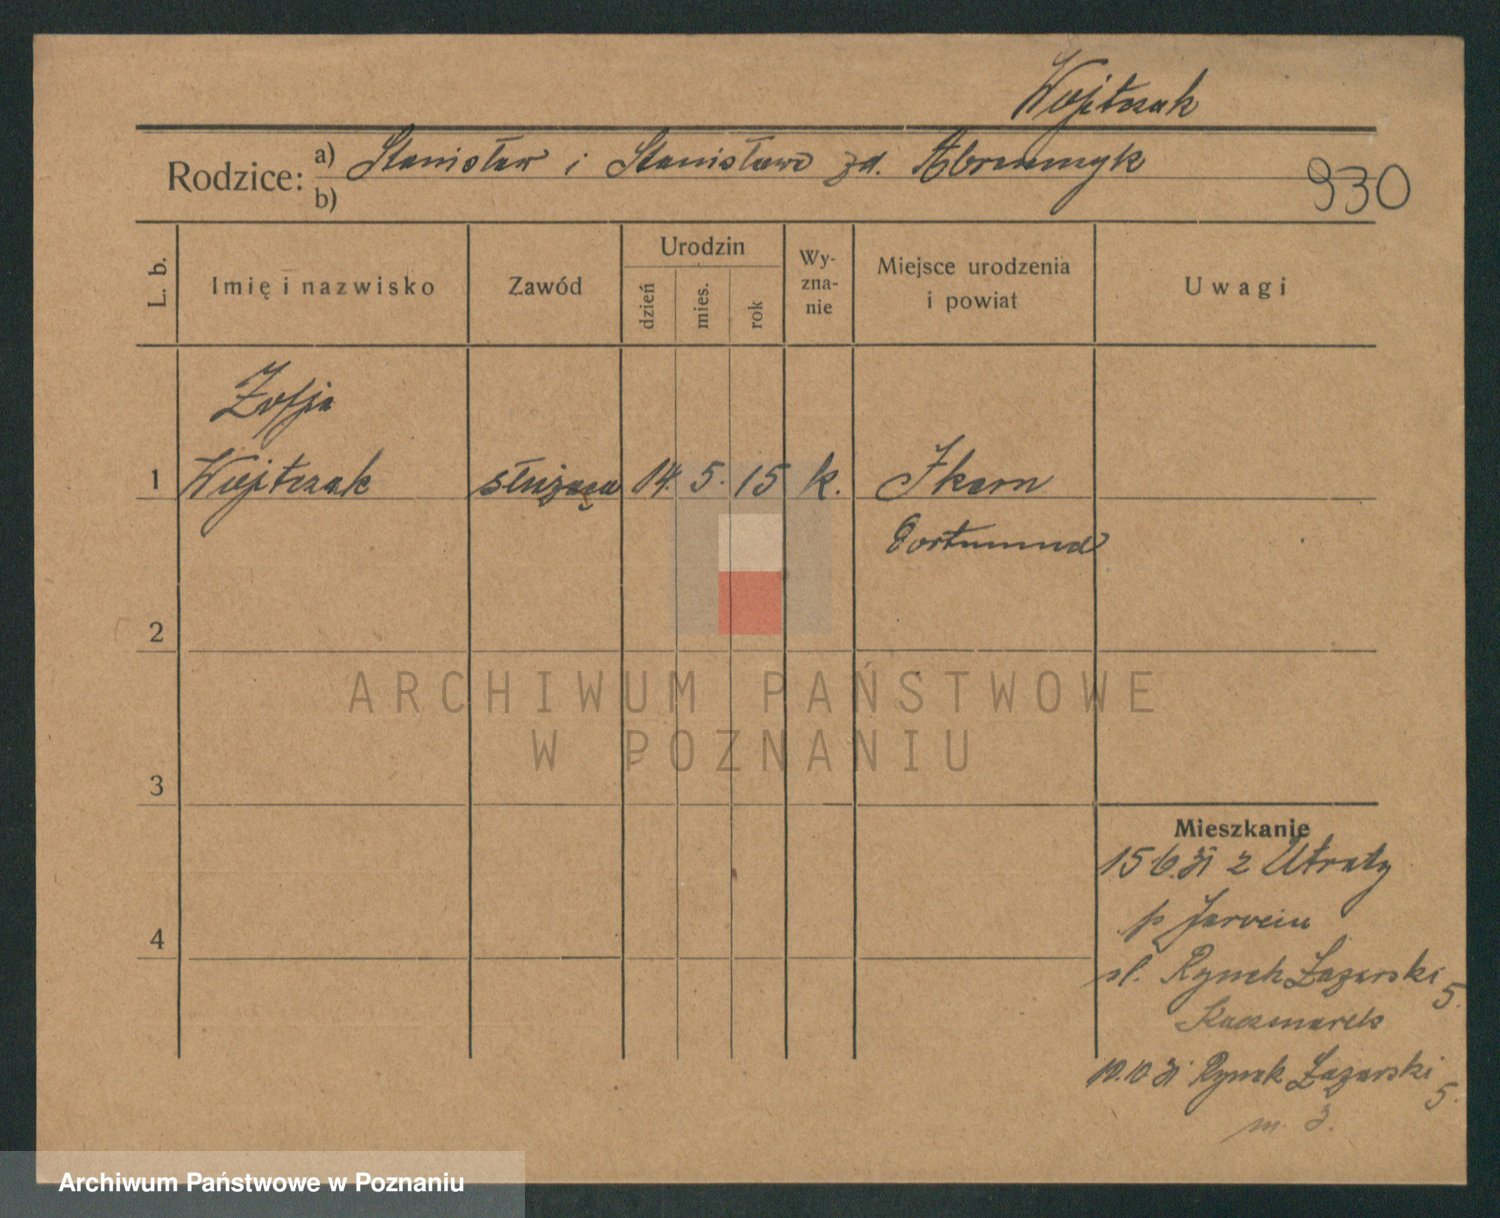 Wojtczak
Rodzice: a) Stanisław i Stanisława zd.
b)
930
L. b. Imię i nazwisko Zawód Urodzin dzień mies. rok Wy-zna-nie Miejsce urodzenia i powiat Uwagi
Zofja
1 Wojtczak służąca 14. 5. 15 k. Ikern
Dortmund
2
ARCHIWUM PAŃSTWOWE
W POZNANIU
3
Mieszkanie
15 6. 31 z Utraty
p
4
sł. Rynek Łazarski 5.
Kaczmarek
10. 10 31 Rynek Łazarski 5.
m. 3.
Archiwum Państwowe w Poznaniu